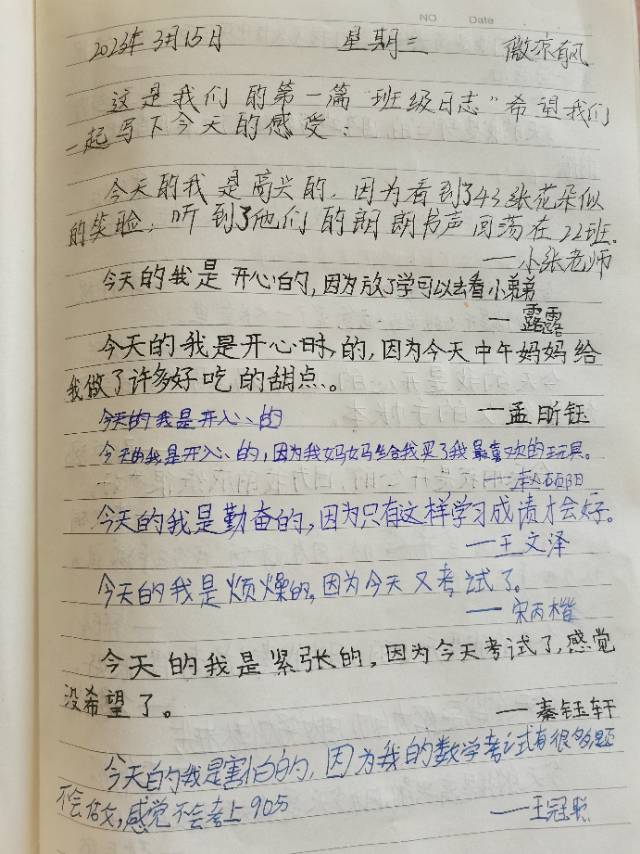 NO Date
2023年3月15日 星期三 微凉有风
这是我们的第一篇"班级日志"希望我们
一起写下今天的感受：
今天的我是高兴的，因为看到了43张花朵似
的笑脸，听到了他们的朗朗书声回荡在22班。
——小张老师
今天的我是开心的,因为放了学可以去看小弟弟
——露露
今天的我是开心的,因为今天中午妈妈给
我做了许多好吃的甜点。
今天的我是开心的 ——孟昕钰
今天的我是开心的,因为我妈妈给我买了我最喜欢的玩具。
赵硕阳
今天的我是勤奋的,因为只有这样学习成绩才会好。
——王文泽
今天的我是烦燥的,因为今天又考试了。
——宋丙楷
今天的我是紧张的,因为今天考试了,感觉
没希望了。
——秦钰轩
今天的我是害怕的的,因为我的数学考试有很多题
不会做,感觉不会考上905
——王冠聪